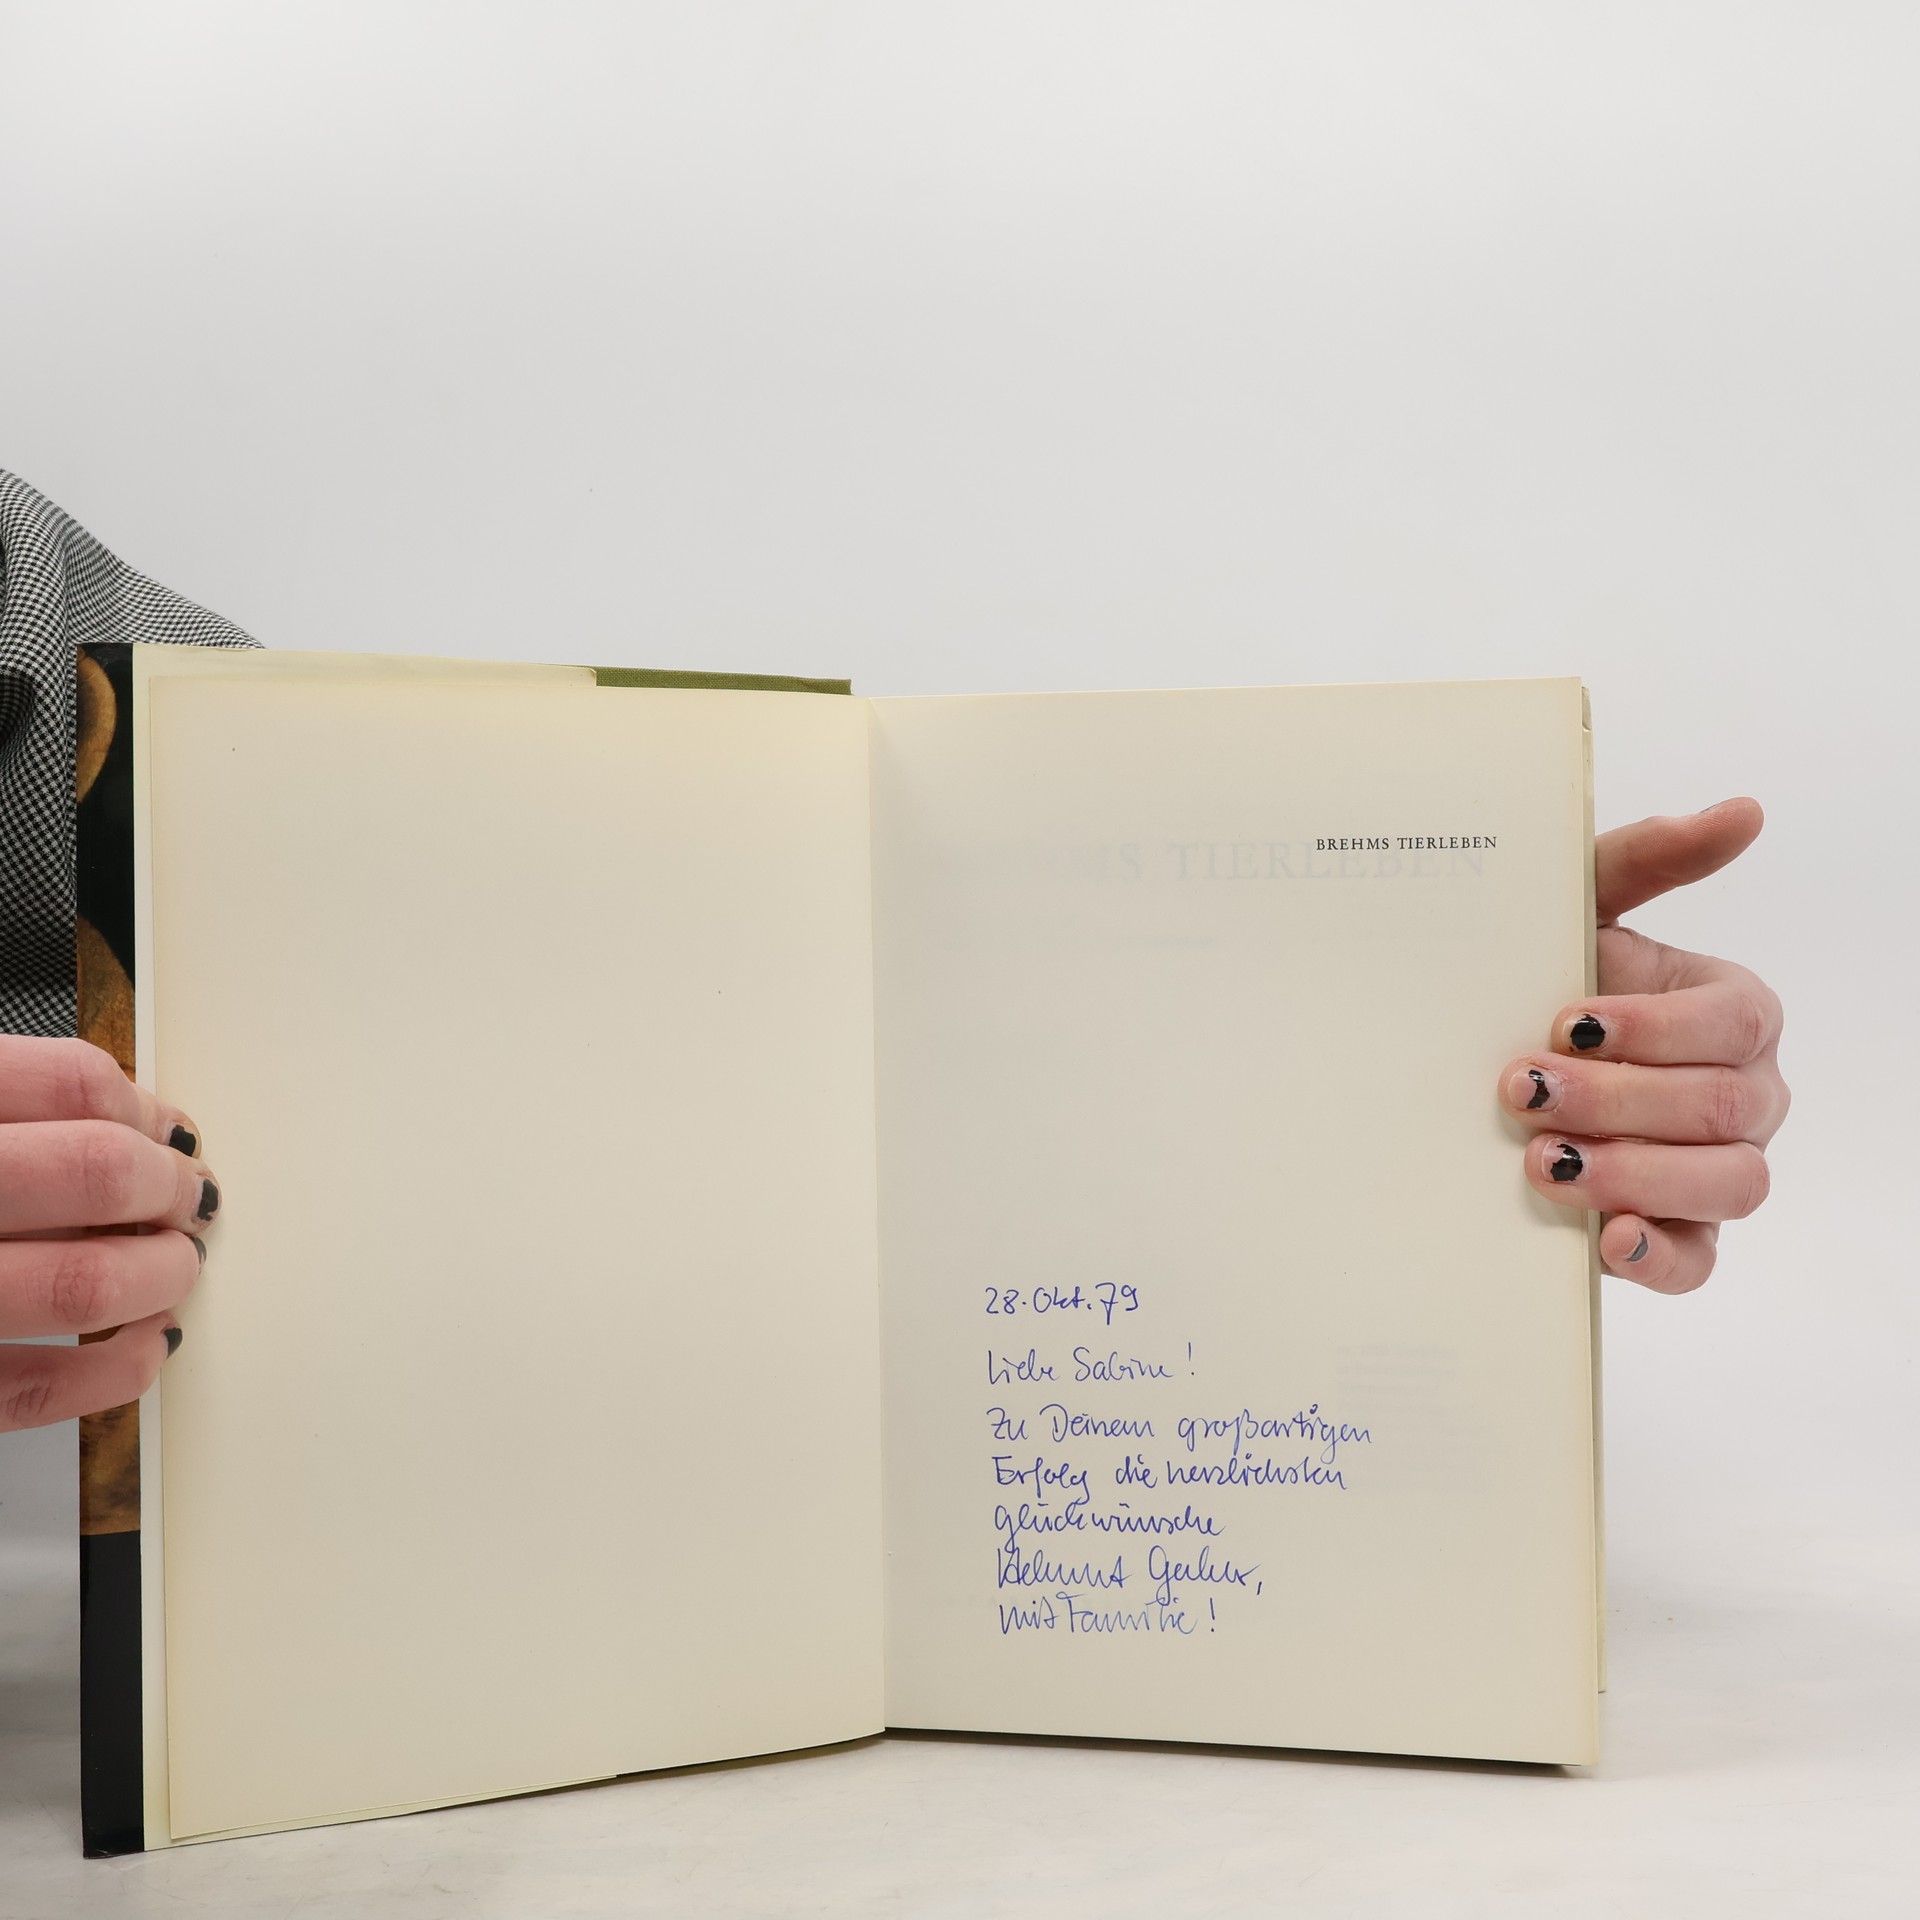 BREHMS TIERLEBEN
BREHMS TIERLEBEN
28. Okt. 79
Liebe Sabine!
Zu Deinem großartigen
Erfolg die herzlichsten
Glückwünsche
Helmut
mit Familie!